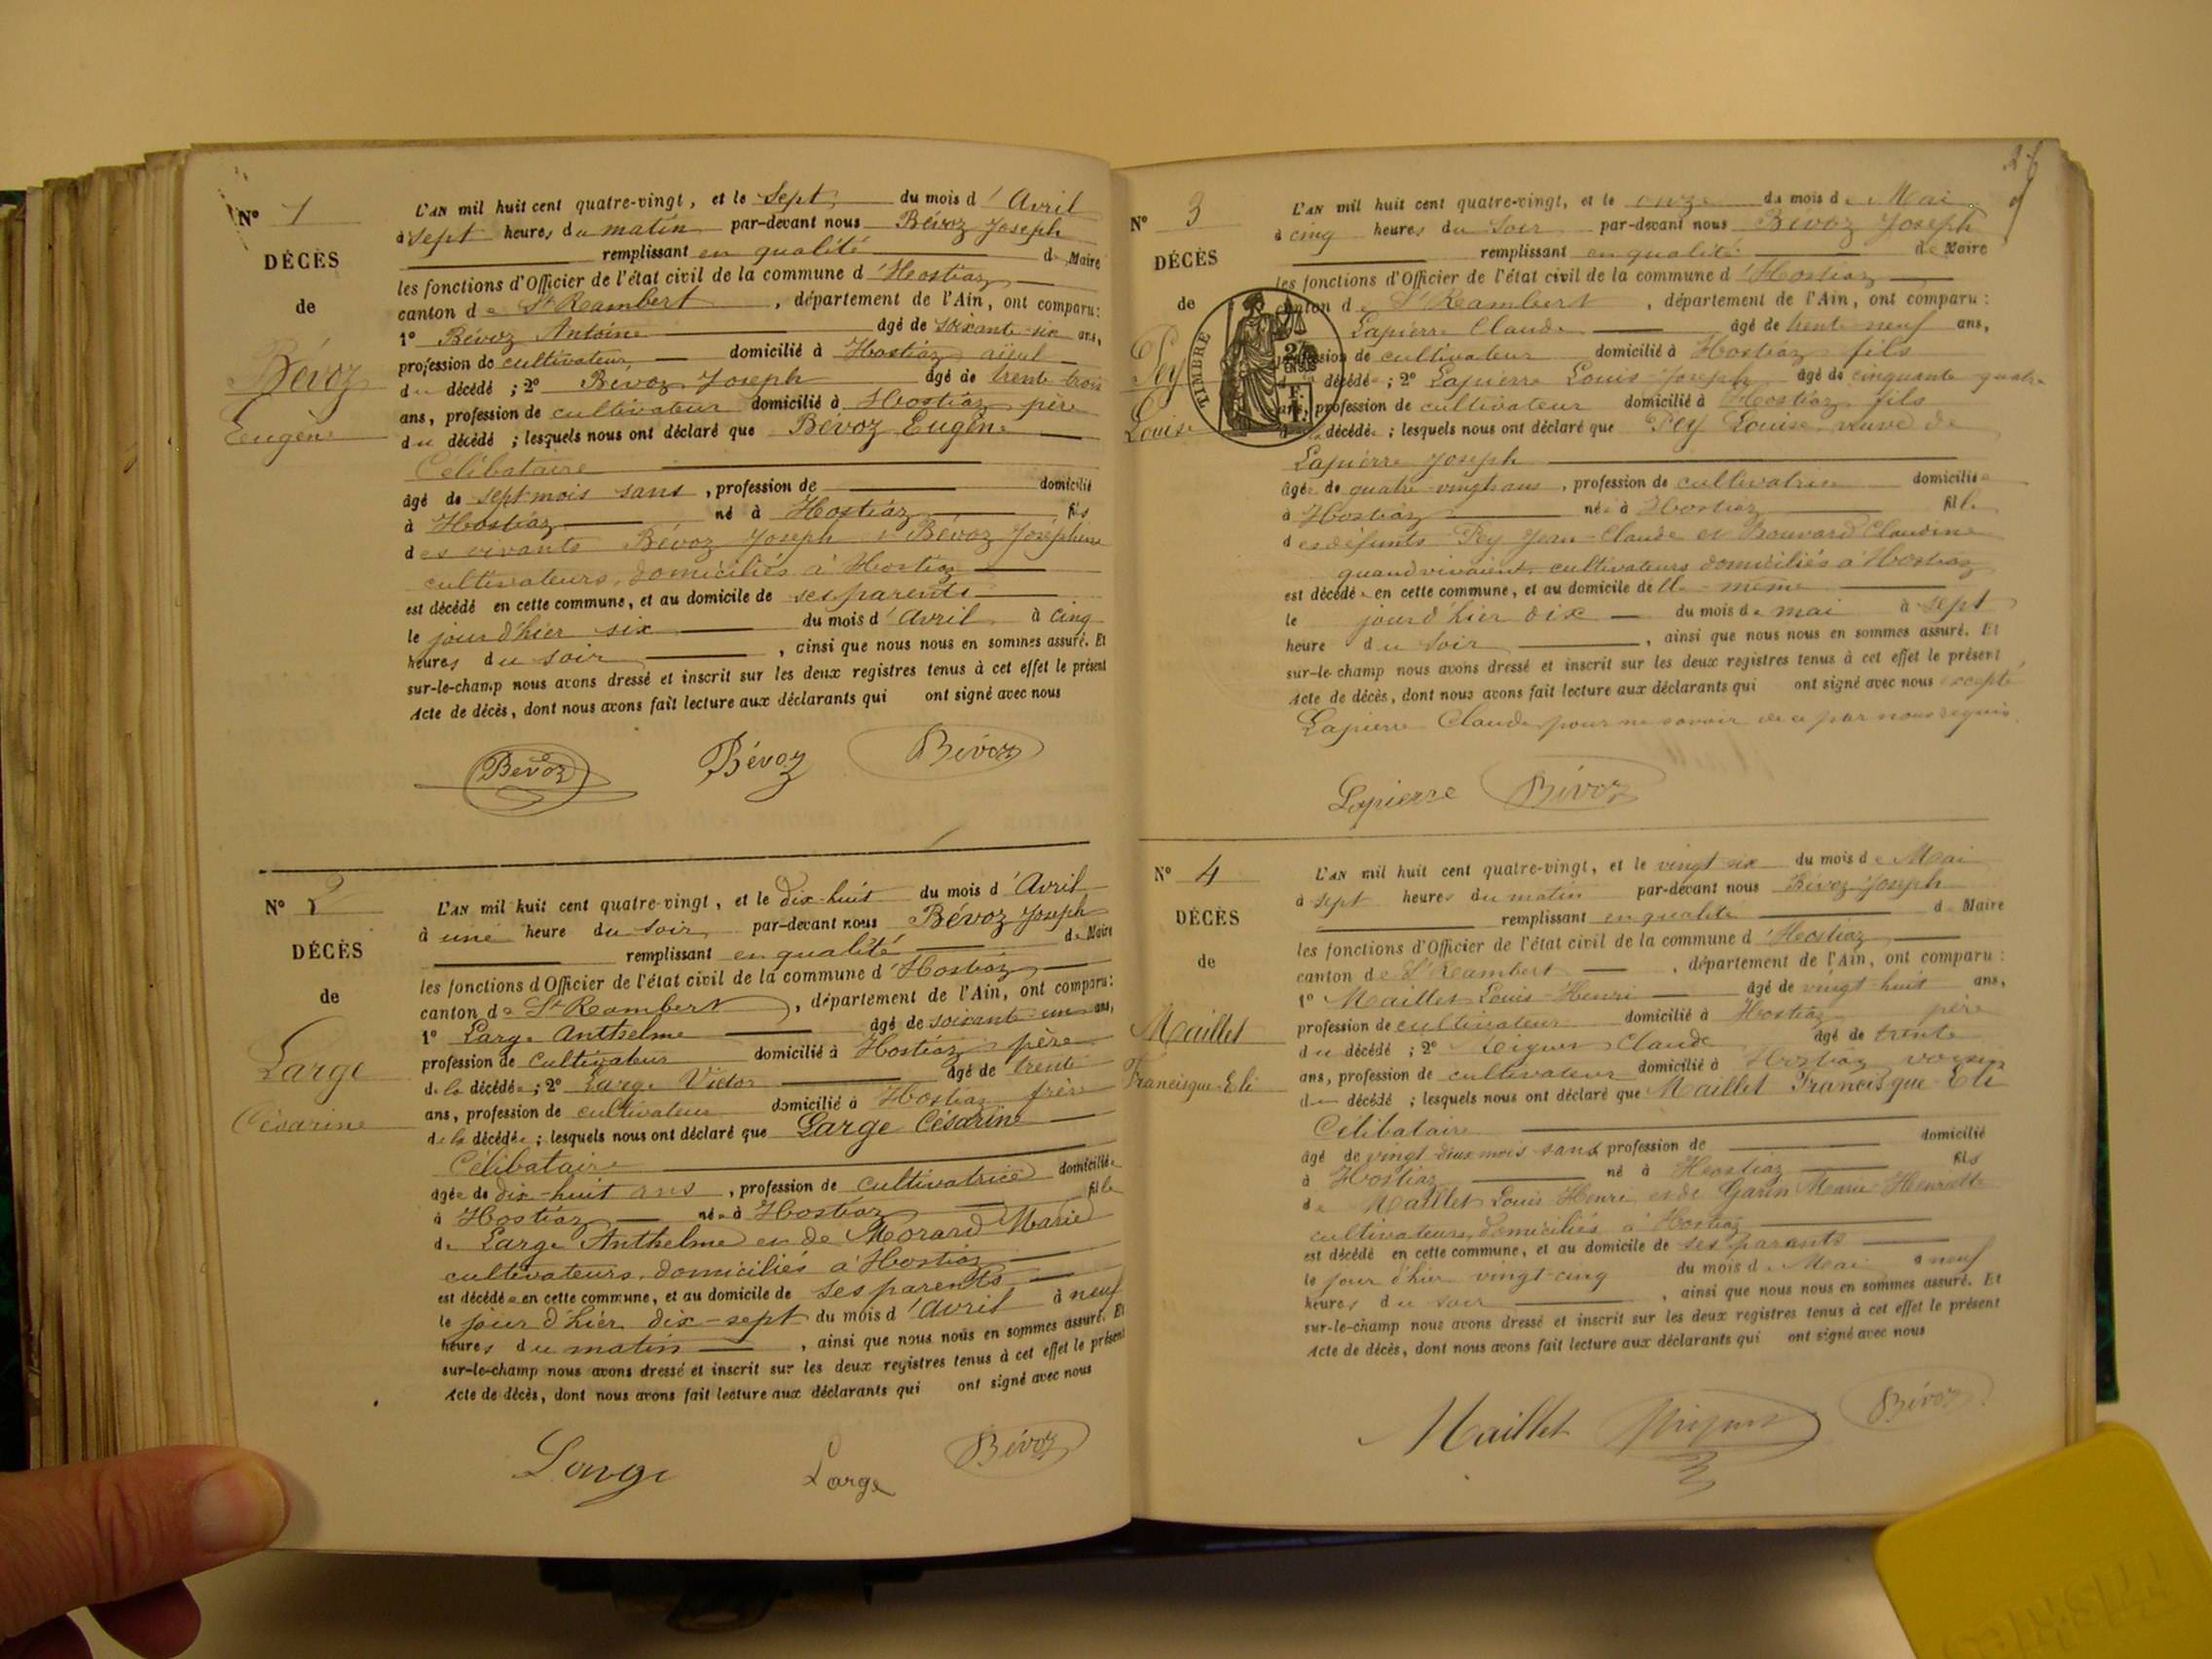 N° 1
DÉCÈS
de
Bévoz
Eugène
L'AN mil huit cent quatre-vingt, et le sept du mois d'Avril
à sept heures du matin par-devant nous Bévoz Joseph
remplissant en qualité de Maire
les fonctions d'Officier de l'état civil de la commune d'Hostiaz
canton de St Rambert, département de l'Ain, ont comparu:
1° Bévoz Antoine âgé de soixante-six ans,
profession de cultivateur domicilié à Hostiaz aïeul
du décédé ; 2° Bévoz Joseph âgé de trente trois
ans, profession de cultivateur domicilié à Hostiaz père
du décédé ; lesquels nous ont déclaré que Bévoz Eugène
Célibataire
âgé de sept mois sans, profession de domicilié
à Hostiaz né à Hostiaz fils
des vivants Bévoz Joseph et Bévoz Joséphine
cultivateurs, domiciliés à Hostiaz
est décédé en cette commune, et au domicile de ses parents
le jour d'hier six du mois d'Avril à cinq
heures du soir, ainsi que nous nous en sommes assuré. Et
sur-le-champ nous avons dressé et inscrit sur les deux registres tenus à cet effet le présent
Acte de décès, dont nous avons fait lecture aux déclarants qui ont signé avec nous
Bévoz Bévoz Bévoz
N° 2
DÉCÈS
de
Large
Césarine
L'AN mil huit cent quatre-vingt, et le dix-huit du mois d'Avril
à une heure du soir par-devant nous Bévoz Joseph
remplissant en qualité de Maire
les fonctions d'Officier de l'état civil de la commune d'Hostiaz
canton de St Rambert, département de l'Ain, ont comparu:
1° Large Anthelme âgé de soixante-un ans,
profession de cultivateur domicilié à Hostiaz père
de la décédée ; 2° Large Victor âgé de trente
ans, profession de cultivateur domicilié à Hostiaz frère
de la décédée ; lesquels nous ont déclaré que Large Césarine
Célibataire
âgée de dix-huit ans, profession de cultivatrice domiciliée
à Hostiaz née à Hostiaz fille
de Large Anthelme et de Morard Marie
cultivateurs, domiciliés à Hostiaz
est décédée en cette commune, et au domicile de ses parents
le jour d'hier dix-sept du mois d'Avril à neuf
heures du matin, ainsi que nous nous en sommes assuré. Et
sur-le-champ nous avons dressé et inscrit sur les deux registres tenus à cet effet le présent
Acte de décès, dont nous avons fait lecture aux déclarants qui ont signé avec nous
Large Large Bévoz
N° 3
DÉCÈS
de
Pey
Louise
TIMBRE
L'AN mil huit cent quatre-vingt, et le onze du mois de Mai
à cinq heures du soir par-devant nous Bévoz Joseph
remplissant en qualité de Maire
les fonctions d'Officier de l'état civil de la commune d'Hostiaz
canton de St Rambert, département de l'Ain, ont comparu:
Lapierre Claude âgé de trente neuf ans,
profession de cultivateur domicilié à Hostiaz fils
décédée ; 2° Lapierre Louis-Joseph âgé de cinquante quatre
ans, profession de cultivateur domicilié à Hostiaz fils
décédée ; lesquels nous ont déclaré que Pey Louise veuve de
Lapierre Joseph
âgée de quatre-vingt ans, profession de cultivatrice domiciliée
à Hostiaz née à Hostiaz fille
des défunts Pey Jean-Claude et Bouvard Claudine
quand vivaient, cultivateurs domiciliés à Hostiaz
est décédée en cette commune, et au domicile de elle-même
le jour d'hier dix du mois de mai à sept
heure du soir, ainsi que nous nous en sommes assuré. Et
sur-le-champ nous avons dressé et inscrit sur les deux registres tenus à cet effet le présent
Acte de décès, dont nous avons fait lecture aux déclarants qui ont signé avec nous excepté
Lapierre Claude pour ne savoir de ce par nous requis
Lapierre Bévoz
N° 4
DÉCÈS
de
Maillet
Francisque-Eli
L'AN mil huit cent quatre-vingt, et le vingt-six du mois de Mai
à sept heures du matin par-devant nous Bévoz Joseph
remplissant en qualité de Maire
les fonctions d'Officier de l'état civil de la commune d'Hostiaz
canton de St Rambert, département de l'Ain, ont comparu:
1° Maillet Louis-Henri âgé de vingt-huit ans,
profession de cultivateur domicilié à Hostiaz père
du décédé ; 2° Claude âgé de trente
ans, profession de cultivateur domicilié à Hostiaz voisin
du décédé ; lesquels nous ont déclaré que Maillet Francisque-Eli
Célibataire
âgé de vingt-deux mois sans profession de domicilié
à Hostiaz né à Hostiaz fils
de Maillet Louis Henri et de Garin Marie Henriette
cultivateurs, domiciliés à Hostiaz
est décédé en cette commune, et au domicile de ses parants
le jour d'hier vingt-cinq du mois de Mai à neuf
heures du soir, ainsi que nous nous en sommes assuré. Et
sur-le-champ nous avons dressé et inscrit sur les deux registres tenus à cet effet le présent
Acte de décès, dont nous avons fait lecture aux déclarants qui ont signé avec nous
Maillet Bévoz